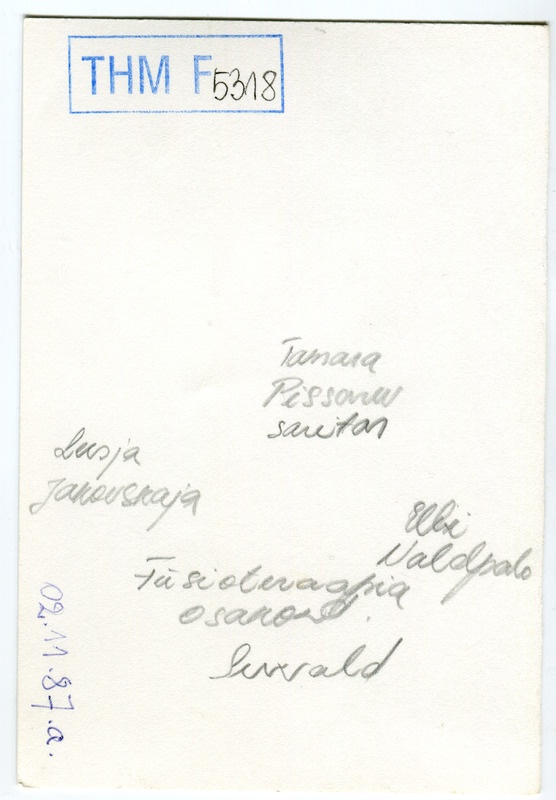 THM F 5318
Tamara
sanitar
Lusja
Janovskaja
Elbi
Naldpalo
Füsioteraapia
osakond.
02.11.87.a.